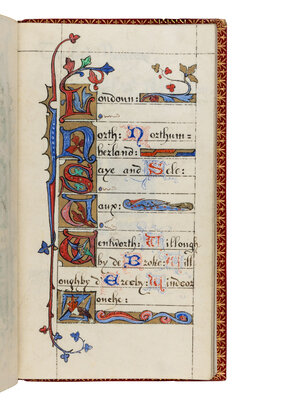 Loudoun:
North: Northum=
berland:
Saye and Sele:
Vaux:
Wentworth: Willough
by de Broke: Will
oughby d'Eresby: Windsor
Zouche: